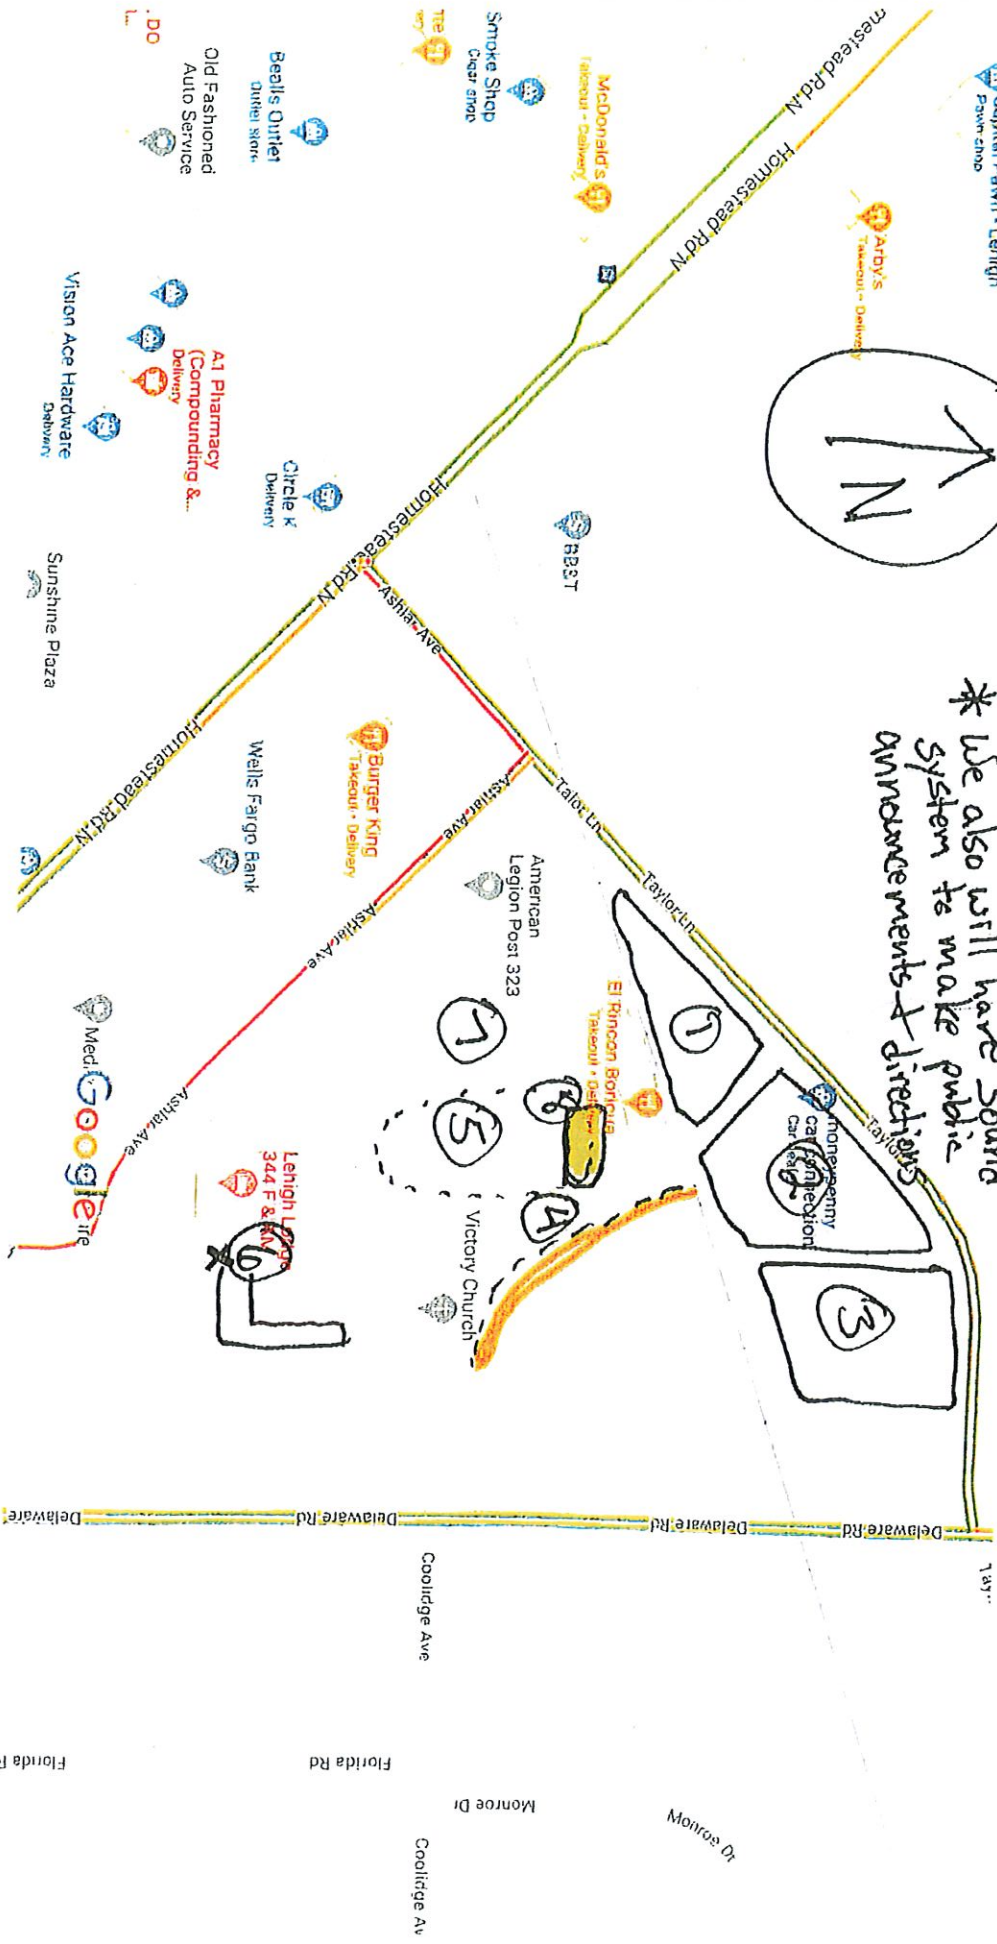 * We also will have sound
system to make public
announcements & directions
N
Pawn shop
Arby's
Takeout • Delivery
mestead Rd N
Homestead Rd N
McDonald's
Takeout • Delivery
Smoke Shop
Cigar shop
Bealls Outlet
Outlet store
Old Fashioned
Auto Service
BB&T
Circle K
Delivery
A1 Pharmacy
(Compounding &...
Delivery
Vision Ace Hardware
Delivery
Sunshine Plaza
Homestead Rd N
Homestead Rd N
Ashlar Ave
Ashlar Ave
Ashlar Ave
Ashlar Ave
Talor Ln
Taylor Ln
Burger King
Takeout • Delivery
Wells Fargo Bank
American
Legion Post 323
El Rincon Boricua
Takeout • Delivery
moneypenny
car connection
Victory Church
Lehigh Lodge
344 F & AM
Google
1
2
3
4
5
6
7
8
Delaware Rd
Delaware Rd
Delaware Rd
Delaware Rd
Delaware
Coolidge Ave
Florida Rd
Monroe Dr
Monroe Dr
Coolidge Av